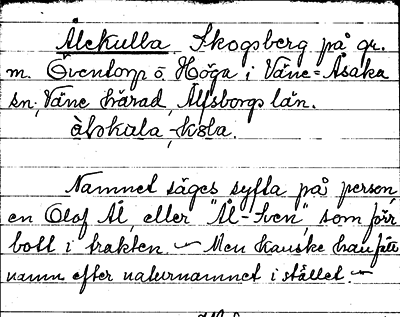 Ålekulla. Skogsberg på gr.
m. Öventorp o. Höga i Väne-Åsaka
sn, Väne härad, Älfsborgs län.
àl₂kula, -kola.
Namnet säges syfta på person,
en Olof Ål, eller "Ål-Sven" som förr
bott i trakten. — Men kanske han fått
namn efter naturnamnet i stället. —